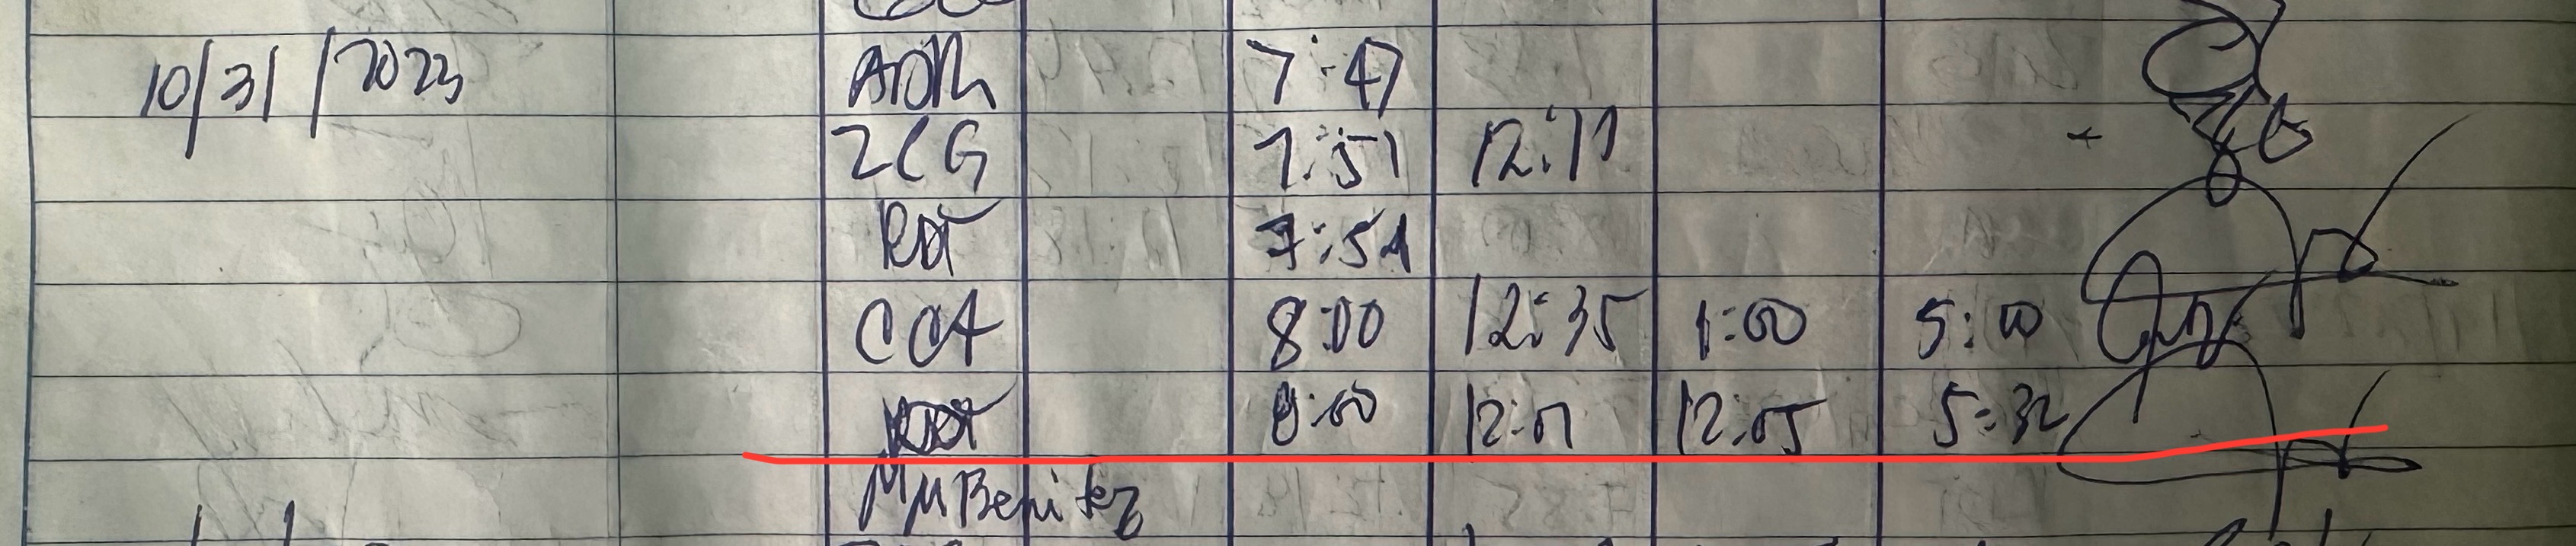 10/31/2023 ADR 7:47
ZCG 7:51 12:11
RDT 7:51
CCA 8:00 12:35 1:00 5:00
8:00 12:01 12:05 5:32
MMBenitez